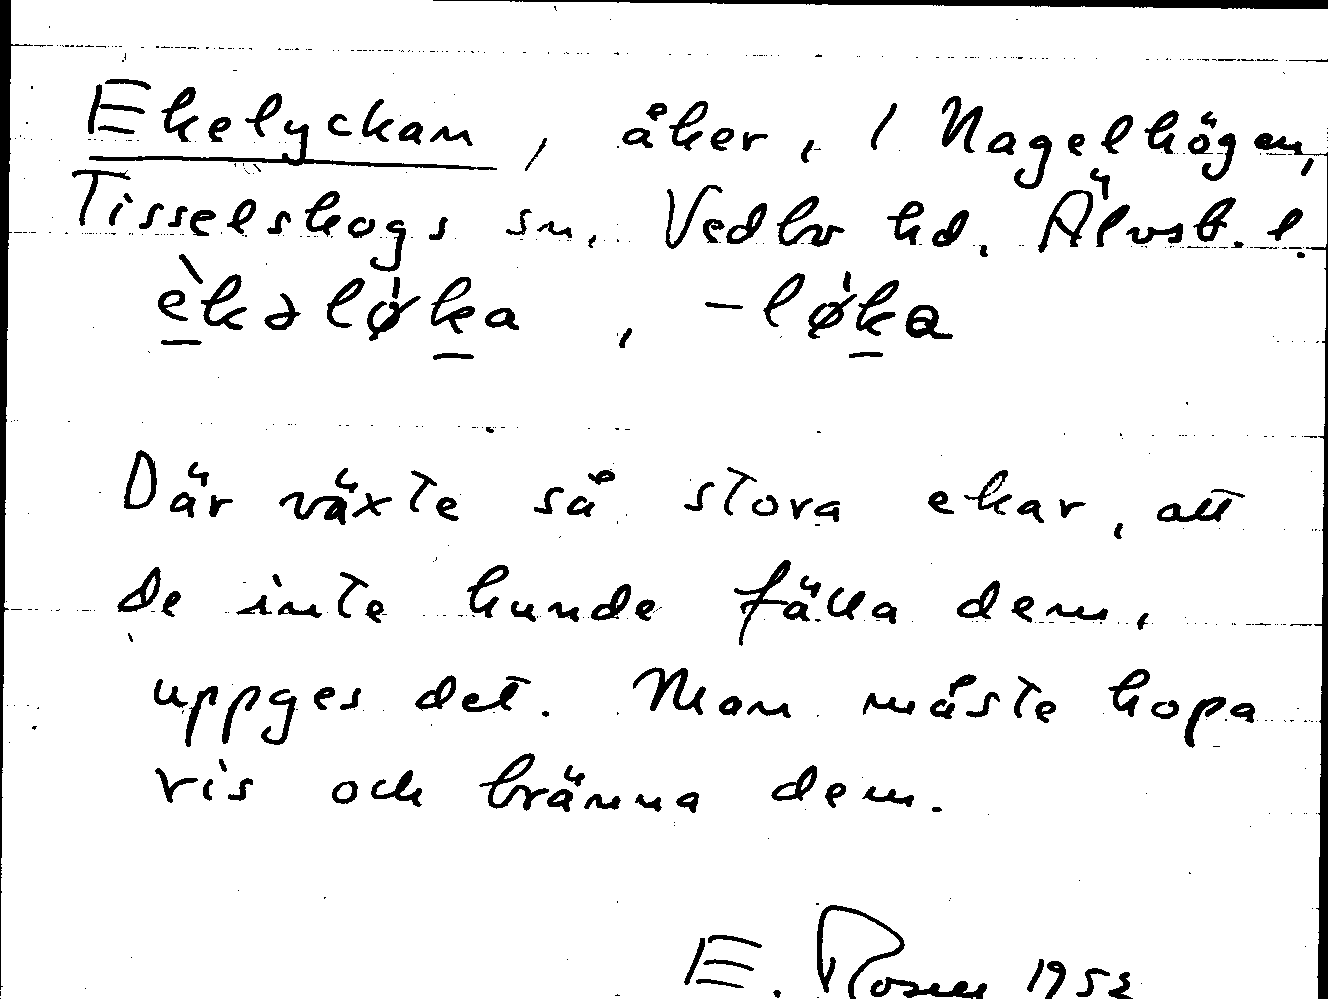 Ekelyckan, åker, 1 Nagelhögen,
Tisselskogs sn. Vedbo hd. Älvsb. l.
èkəlø̀ka, -lø̀kɑ
Där växte så stora ekar, att
de inte kunde fälla dem,
uppges det. Man måste hopa
ris och bränna dem.
E. Rosen 1952